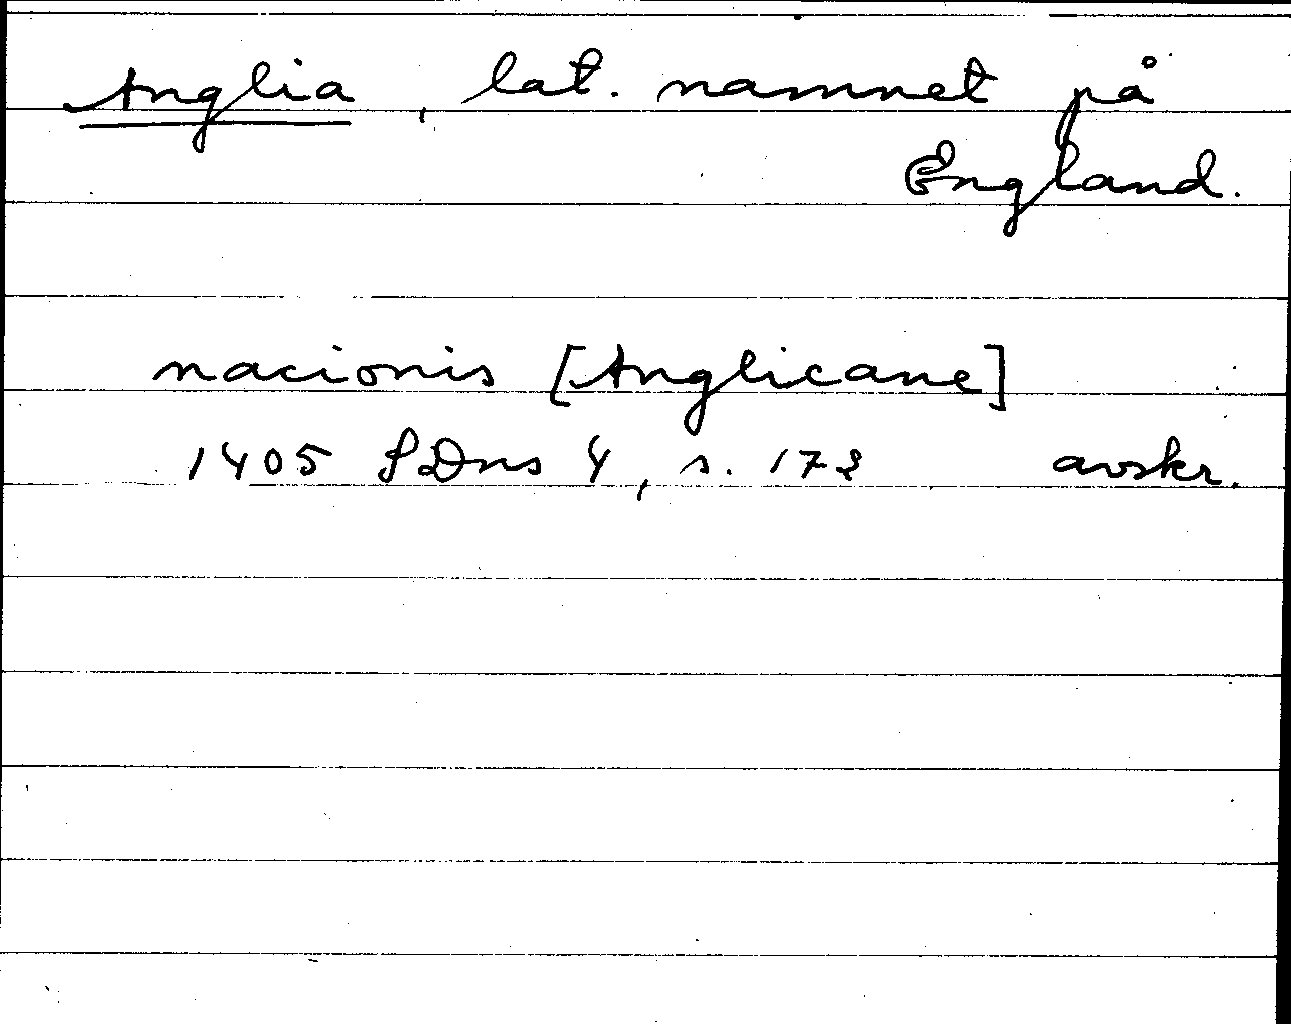 Anglia, lat. namnet på
England.
nacionis [Anglicane]
1405 SDns 4, s. 172 avskr.